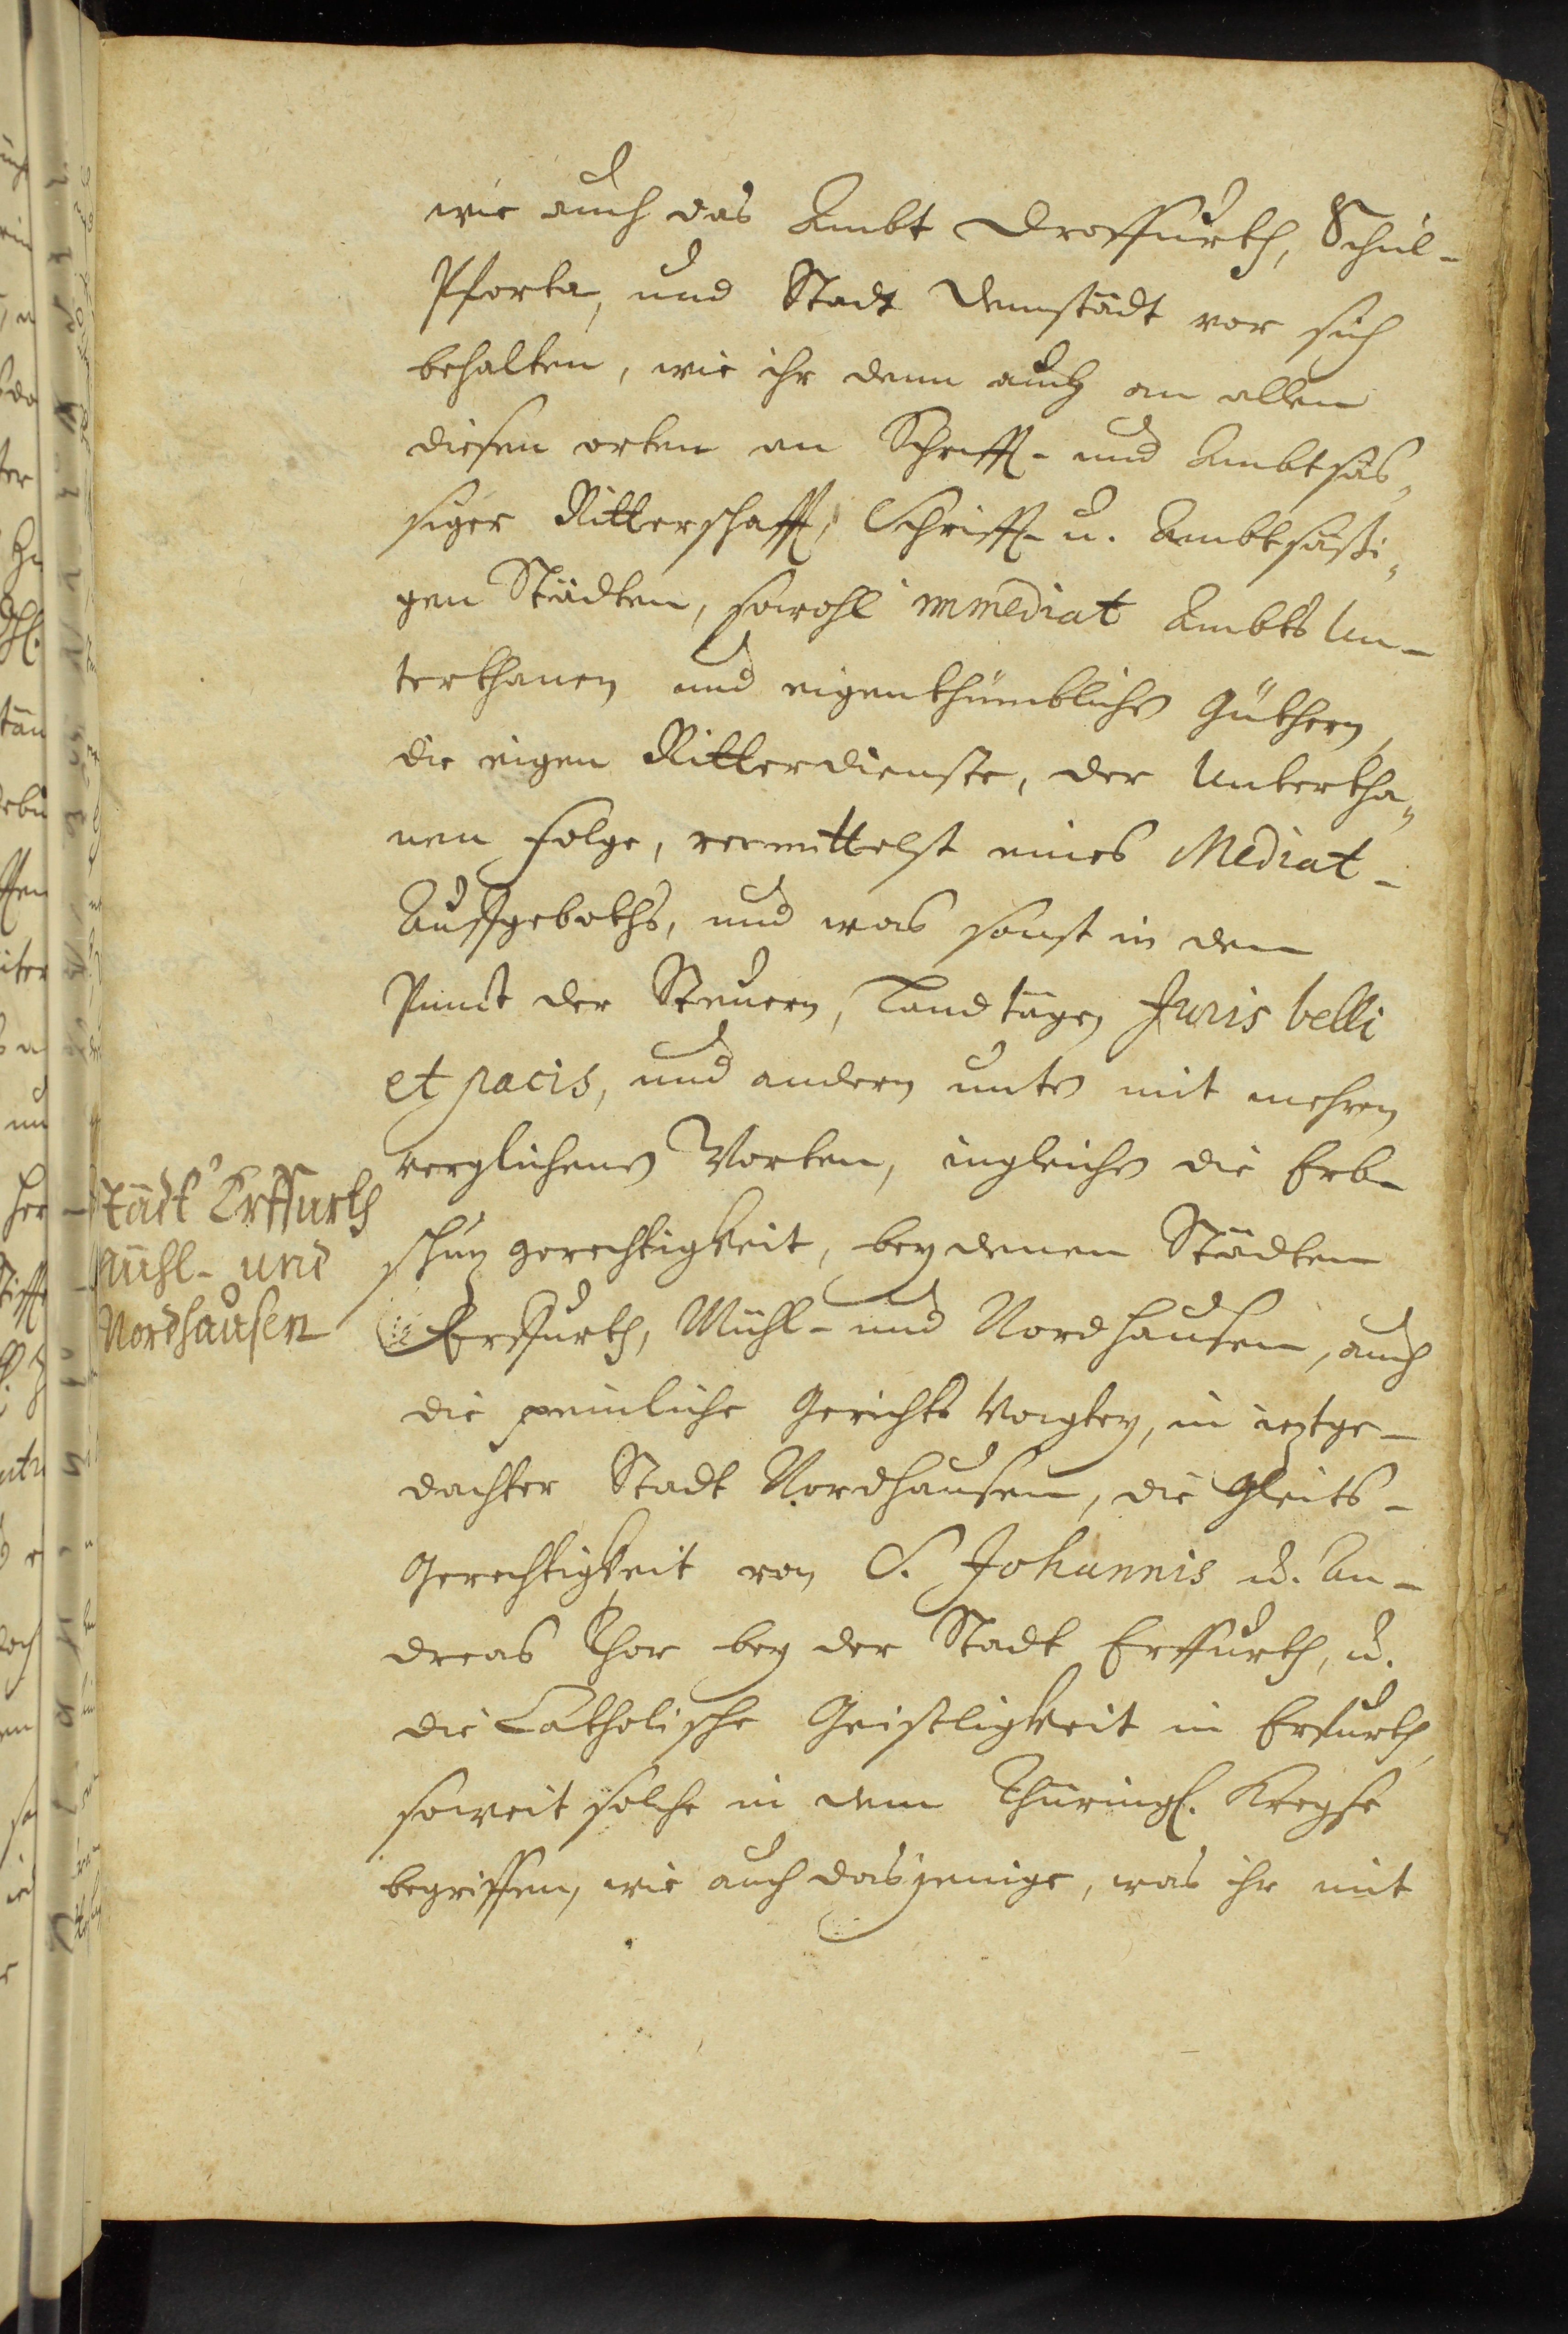 wie auch das Ambt Dreffurth, Schul-
Pforta, und Stadt Dennstädt vor sich
behalten, wie ihr denn auch an allen
diesen orten an Schrifft- und Ambtsäs-
siger Ritterschafft, Schrifft- u. Ambtsäßi-
gen Städten, sowohl immediat Ambts Un-
terthanen und eigenthümbliche Güthern,
die eigen Ritterdienste, der Untertha-
nen folge, vermittelst eines Mediat-
Auffgeboths, und was sonst in dem
Punct der Steuern, Landtägen Juris belli
et pacis, und andern unten mit mehren
verglichenen Worten, ingleichen die Erb-
schuz gerechtigkeit, bey denen Städten
Erffurth, Mühl- und Nordhausen, auch
die peinliche Gerichts Voigtey, in ieztge-
dachter Stadt Nordhausen, die Gleits-
Gerechtigkeit von S. Johannis u. An-
dreas Thor bey der Stadt Erffurth, u.
die Catholische Geistligkeit in Erfurth,
soweit solche in dem Thüringl. Kreyse
begriffen, wie auch dasjenige, was ihr mit
tädt Erffurth
Mühl- und
Nordhausen